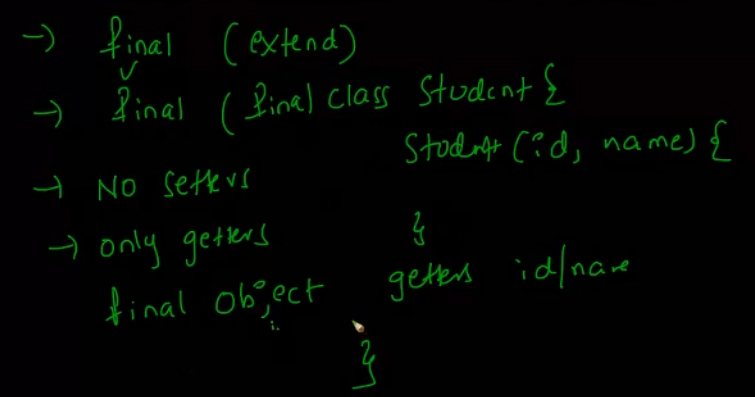 → final (extend)
→ final (final class Student {
Student (id, name) {
→ NO setters
→ only getters }
final object getters id/name
}